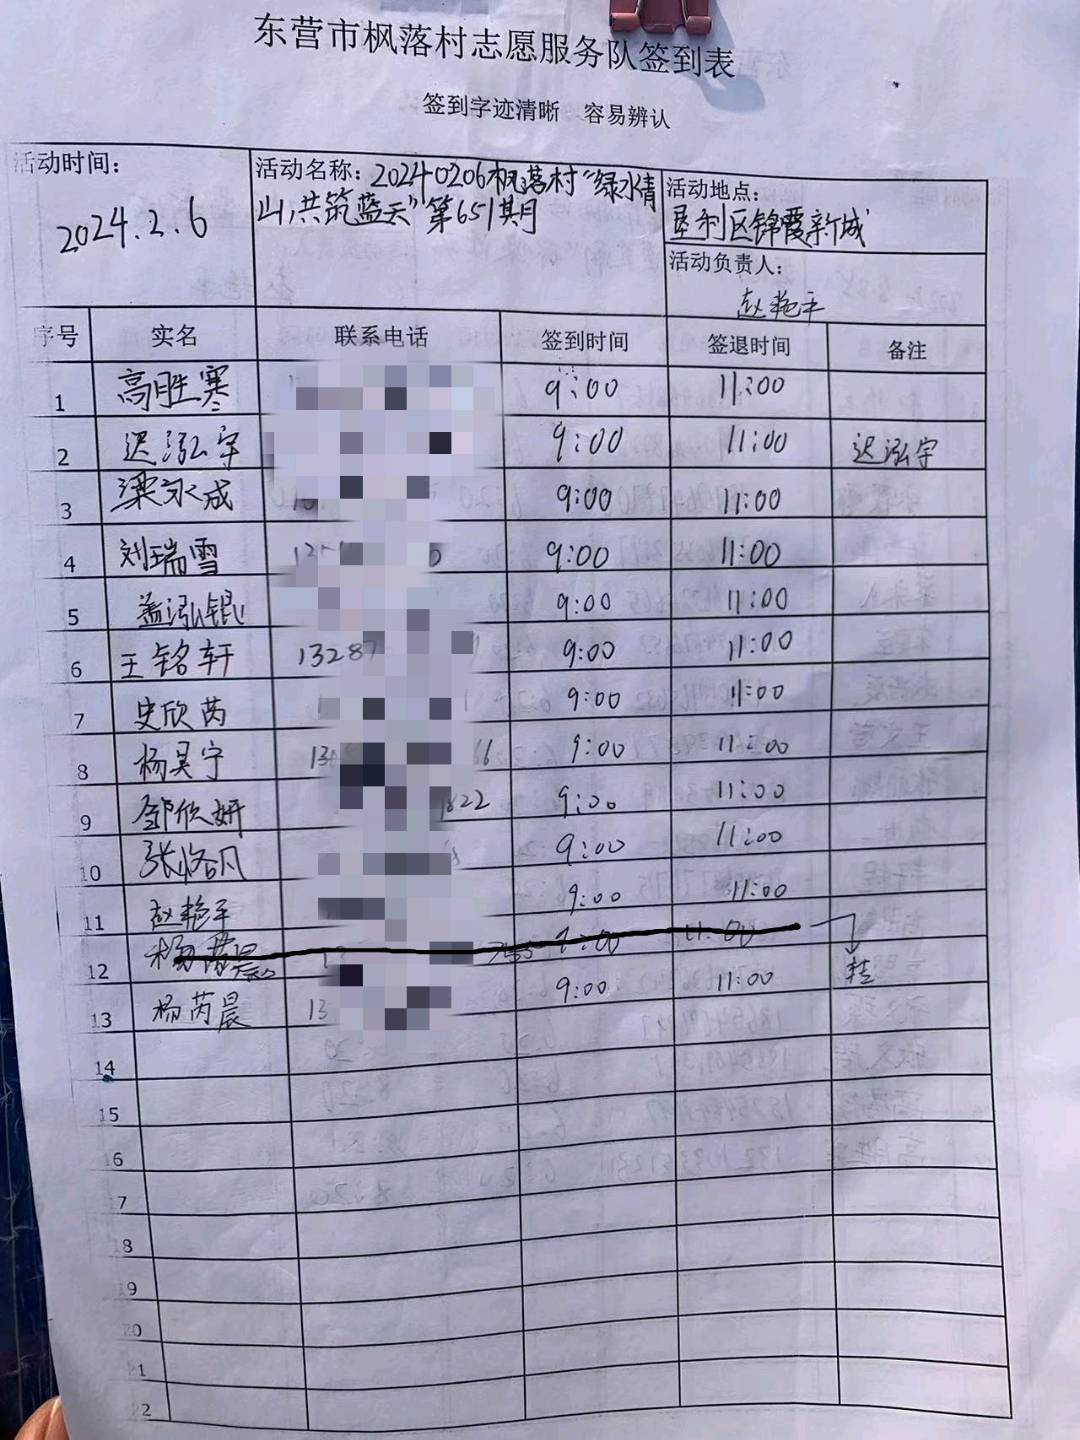 东营市枫落村志愿服务队签到表
签到字迹清晰 容易辨认
活动时间：
2024.2.6
活动名称：20240206枫落村“绿水情
山，共筑蓝天”第651期月
活动地点：
垦利区锦霞新城
活动负责人：
赵艳平
序号 实名 联系电话 签到时间 签退时间 备注
1 高胜寒 9:00 11:00
2 迟泓宇 9:00 11:00 迟泓宇
3 梁永成 9:00 11:00
4 刘瑞雪 9:00 11:00
5 盖泓锟 9:00 11:00
6 王铭轩 13287 9:00 11:00
7 史欣芮 9:00 11:00
8 杨昊宁 66 9:00 11:00
9 邹欣妍 822 9:00 11:00
10 张恪凡 9:00 11:00
11 赵艳平 9:00 11:00
12 杨 9:00 11:00
13 杨芮晨 13 9:00 11:00
14
15
16
17
18
19
20
21
22